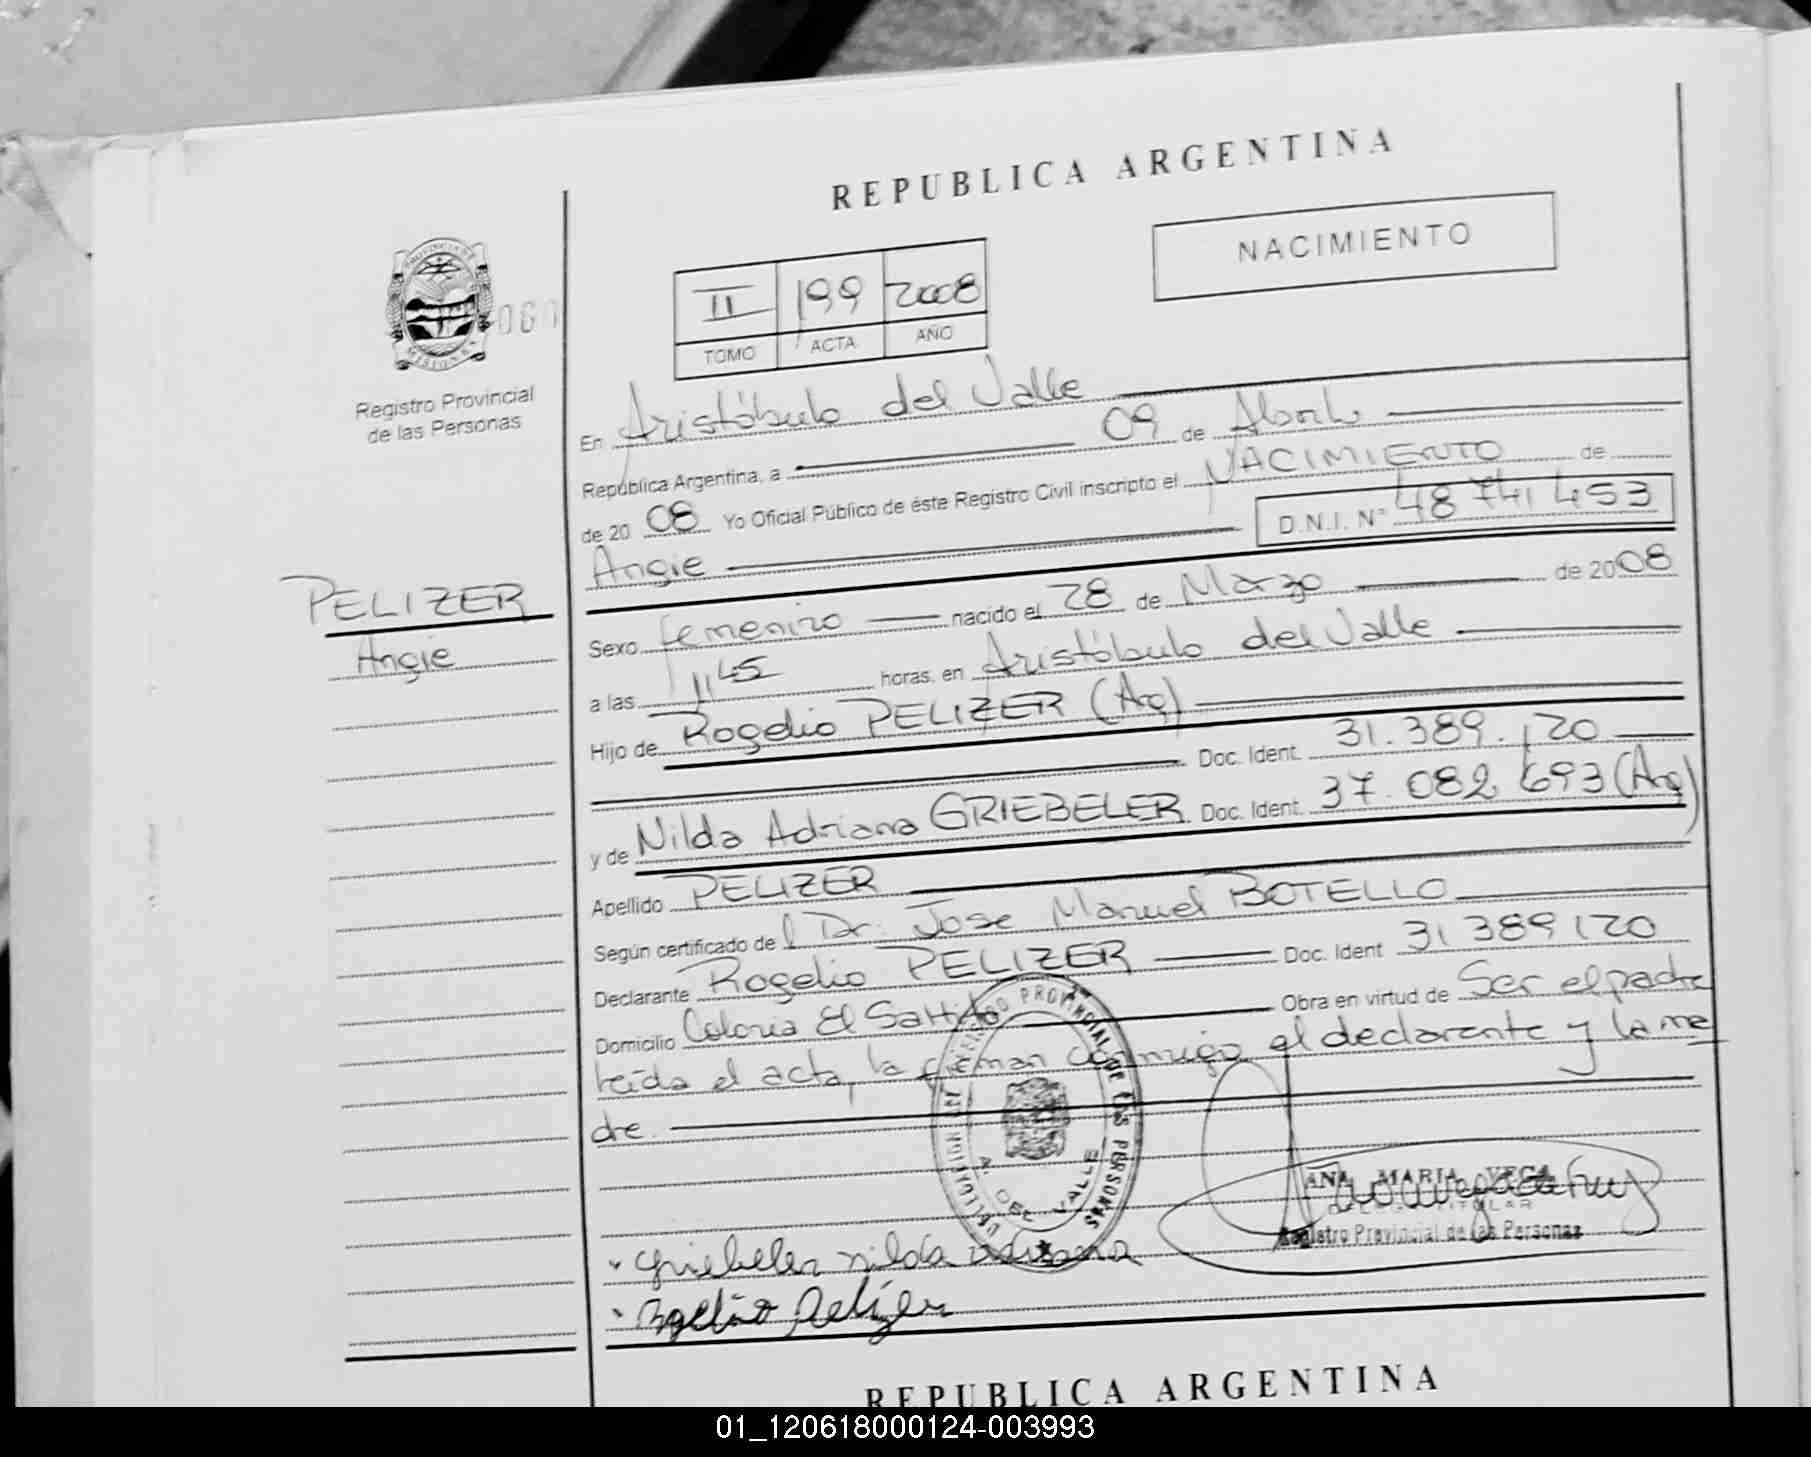 REPUBLICA ARGENTINA
NACIMIENTO
II 199 2008
TOMO ACTA AÑO
PROVINCIA DE
MISIONES
060
Registro Provincial
de las Personas
PELIZER
Angie
En Aristóbulo del Valle
República Argentina, a 09 de Abril
de 20 08 Yo Oficial Público de éste Registro Civil inscripto el NACIMIENTO de
Angie D.N.I. N° 48 741 453
Sexo femenino nacido el 28 de Marzo de 2008
a las 11 45 horas, en Aristóbulo del Valle
Hijo de Rogelio PELIZER (Arg)
Doc. Ident. 31.389.120
y de Nilda Adriana GRIEBELER Doc. Ident. 37.082.693 (Arg)
Apellido PELIZER
Según certificado del Dr. Jose Manuel BOTELLO
Declarante Rogelio PELIZER Doc. Ident 31 389 120
Domicilio Colonia El Saltito Obra en virtud de Ser el padre
leída el acta, la firman conmigo el declarante y la ma
dre.
DELEGACION DEL REGISTRO PROVINCIAL DE LAS PERSONAS
A. DEL VALLE
ANA MARIA VEGA
TITULAR
Registro Provincial de las Personas
Griebeler nilda adriana
Rogelio Pelizer
REPUBLICA ARGENTINA
01_120618000124-003993